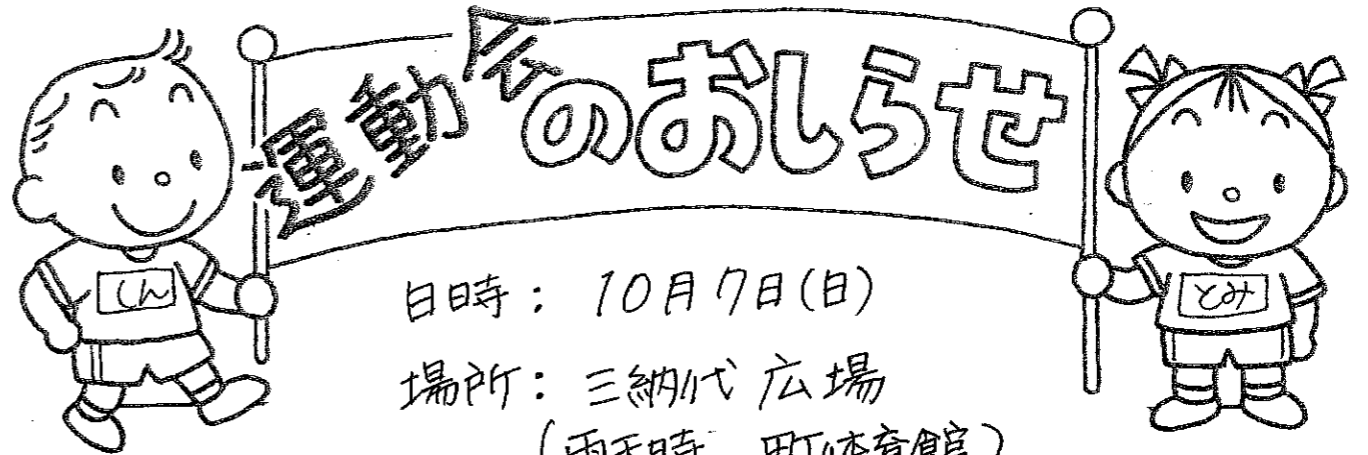 運動会のおしらせ
しん
とみ
日時： 10月7日(日)
場所： 三納代 広場
(雨天時 町体育館)